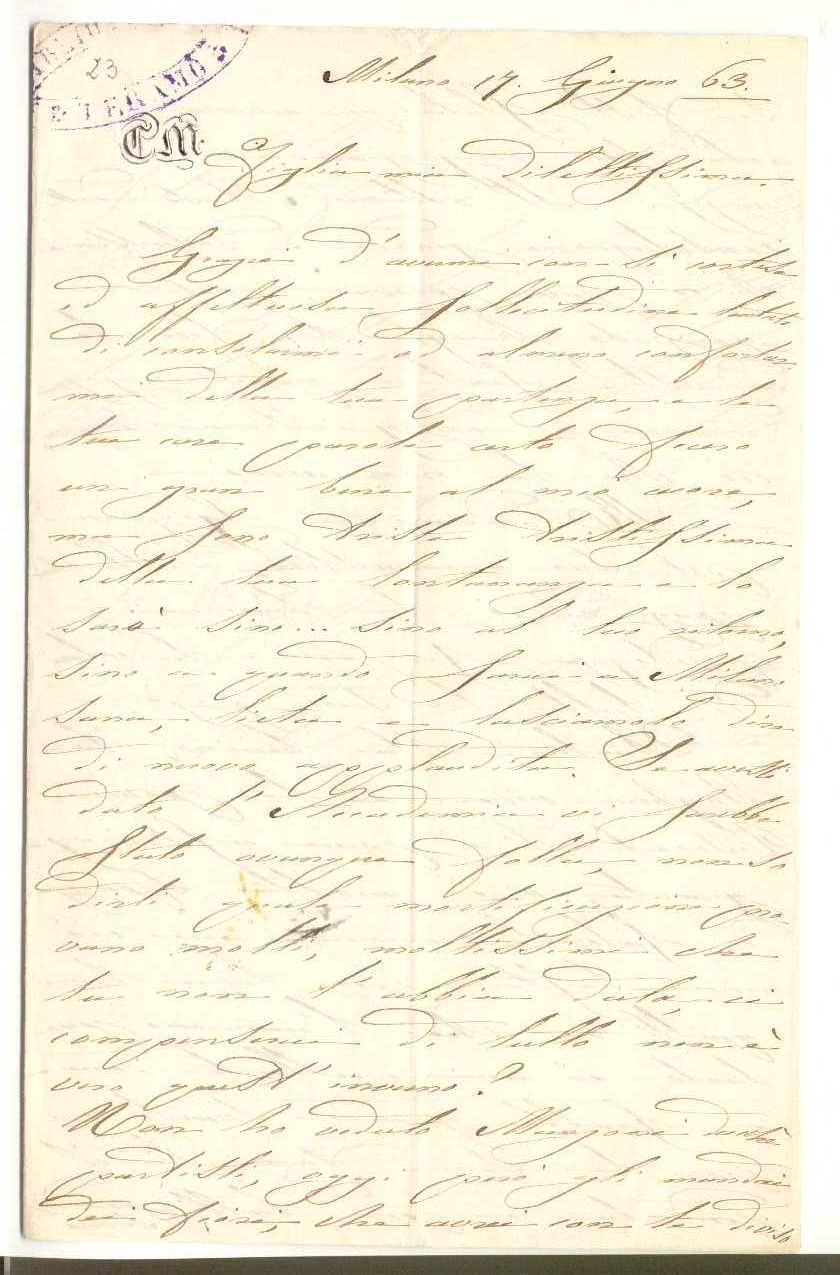 23
TERAMO
CM
Milano 17. Giugno 63.
Figlia mia dilettissima.
Grazie d'avermi con sì cortese
ed affettuosa sollecitudine tentato
di consolarmi od almeno confortar-
mi della tua partenza, e le
tue care parole certo fecero
un gran bene al mio cuore,
ma sono trista tristissima
della tua lontananza e lo
sarò sino... sino al tuo ritorno,
sino a quando sarai a Milano
sana, lieta e lasciamolo dire
di nuovo applaudita. Se avessi
dato l'Accademia vi sarebbe
stato ovunque folla, non so
dirti quale mortificazione pro-
vano molti, moltissimi che
tu non l'abbia data, ci
compenserai di tutto non è
vero quest'inverno?
Non ho veduto
partisti, oggi però gli mandai
dei fiori, che avrei con te diviso